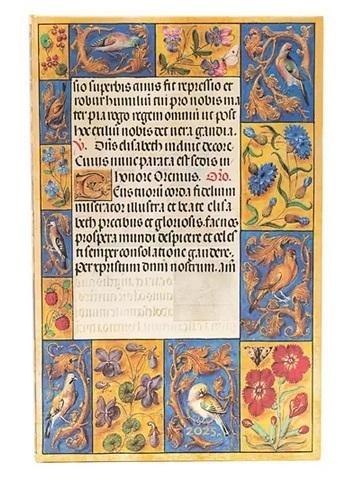 sio superbis fit repressio et
robur humiliū pro nobis ma
ter pia regem omniū ut post
hec exiliū nobis det vera gaudia.
V. Dn̄s elisabeth induit decore.
Cuius nunc parata est sedis in
honore Oremus. Oro.
Deus tuorū corda fidelium
miserator illustra et beate elisa
beth precibus et gloriosis fac nos
prospera mundi despicere et celes
ti semper consolatione gaudere.
Per xpristum dn̄m nostrum. am̄
2025